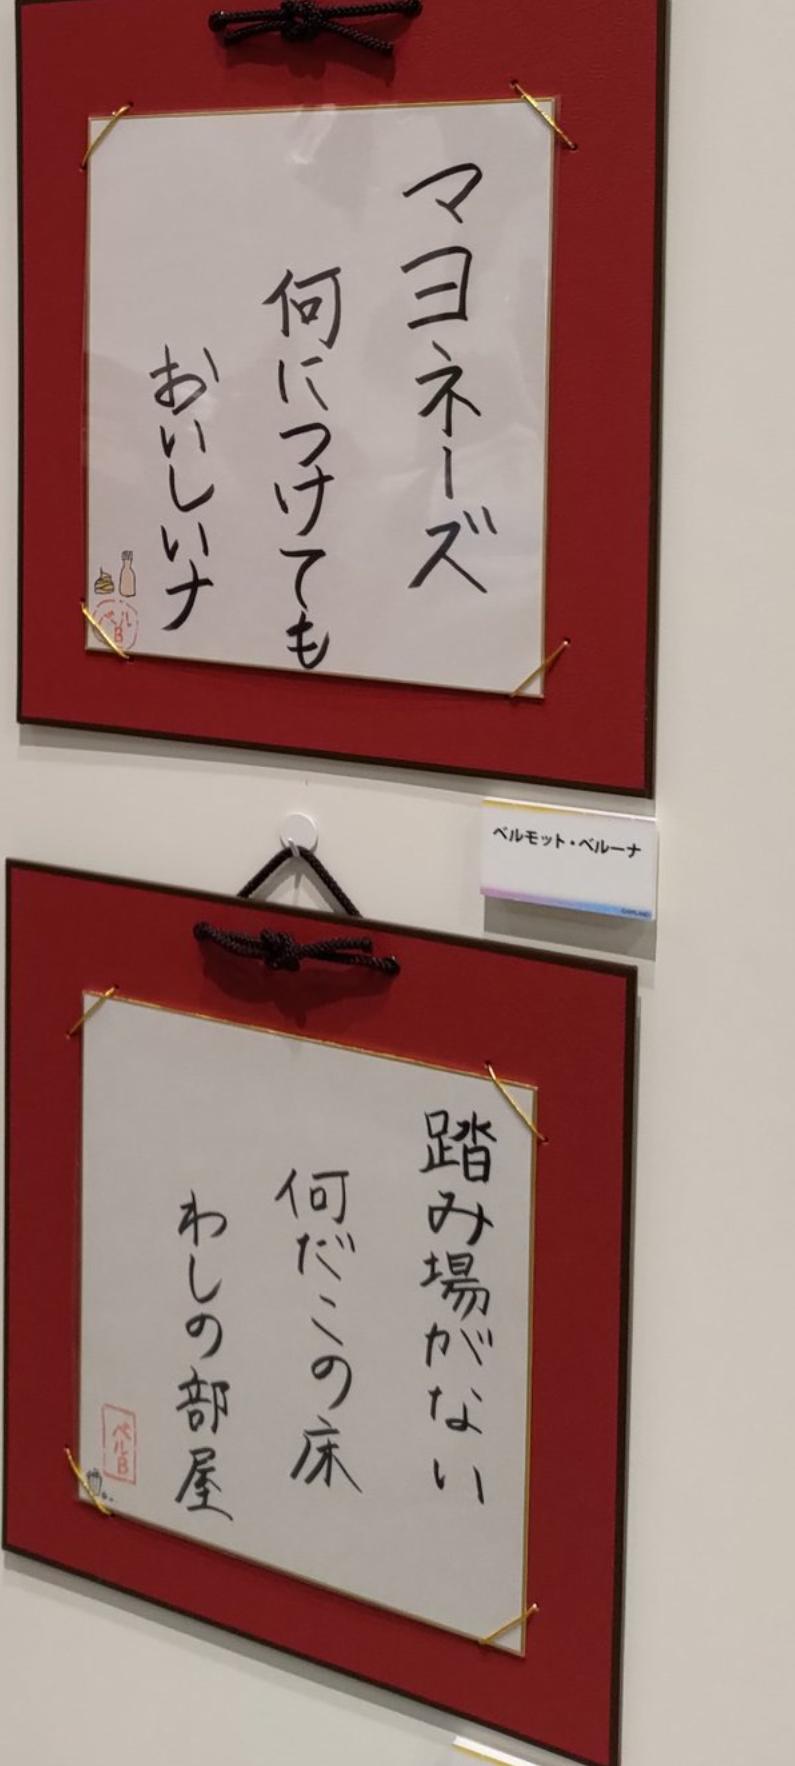 マヨネーズ
何につけても
おいしいナ
ベルB
ベルモット・ベルーナ
踏み場がない
何だこの床
わしの部屋
ベルB